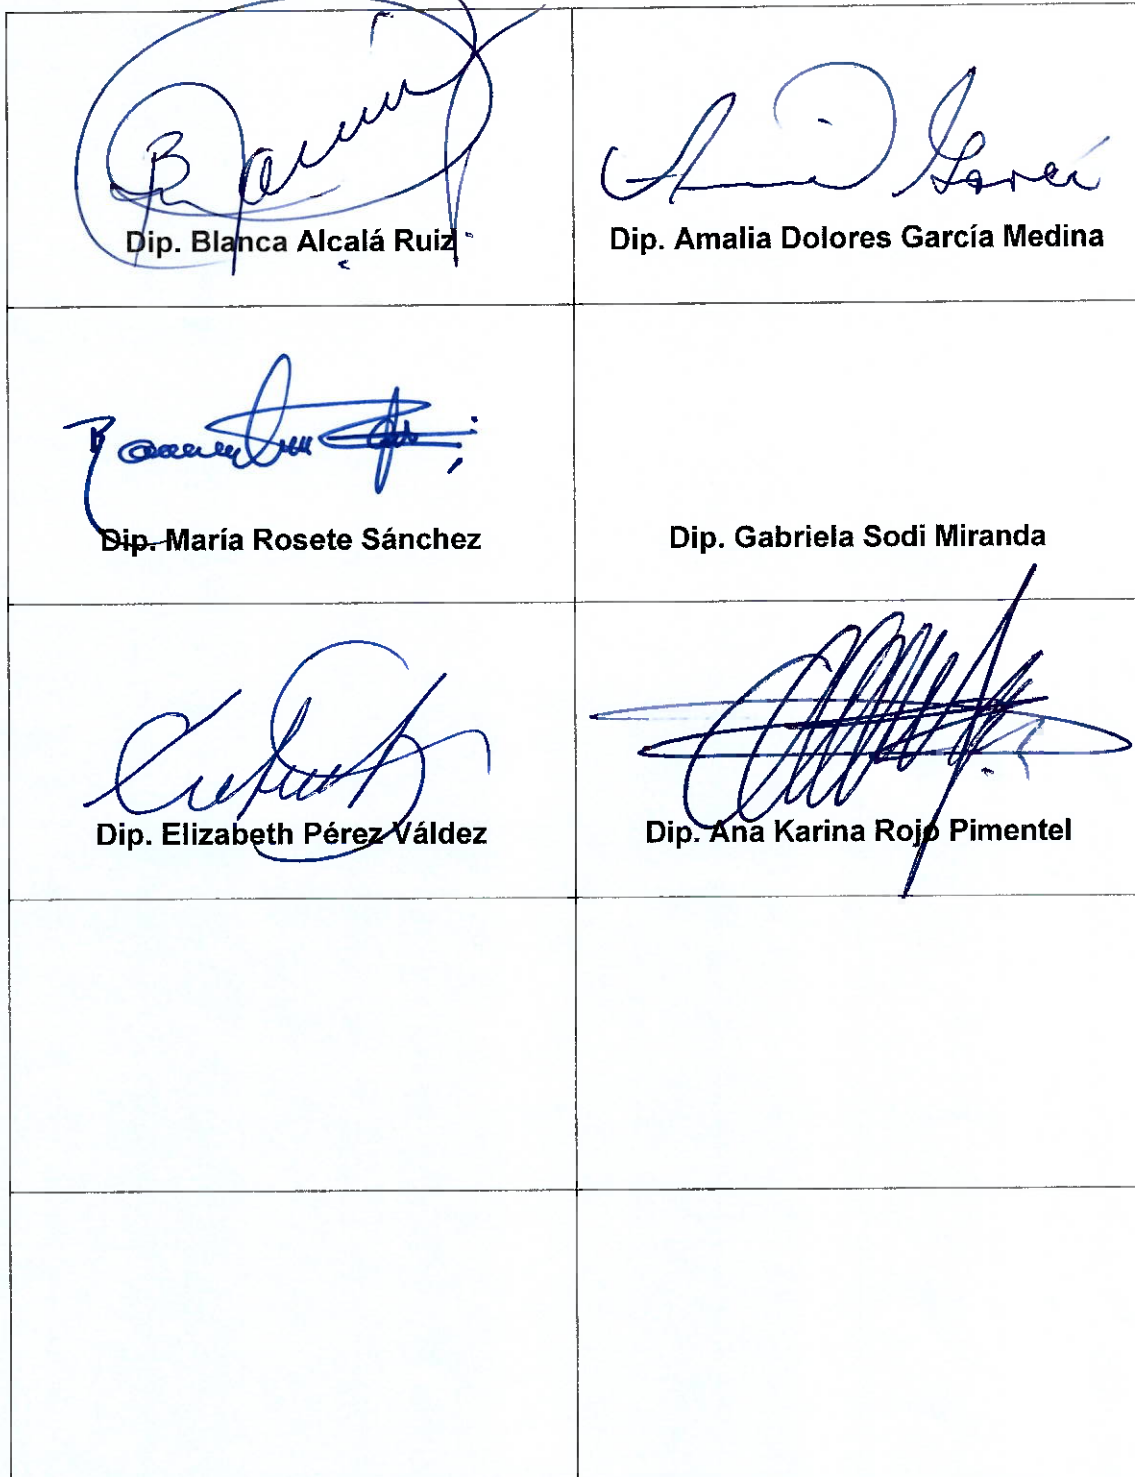 Dip. Blanca Alcalá Ruiz
Dip. Amalia Dolores García Medina
Dip. María Rosete Sánchez
Dip. Gabriela Sodi Miranda
Dip. Elizabeth Pérez Váldez
Dip. Ana Karina Rojo Pimentel